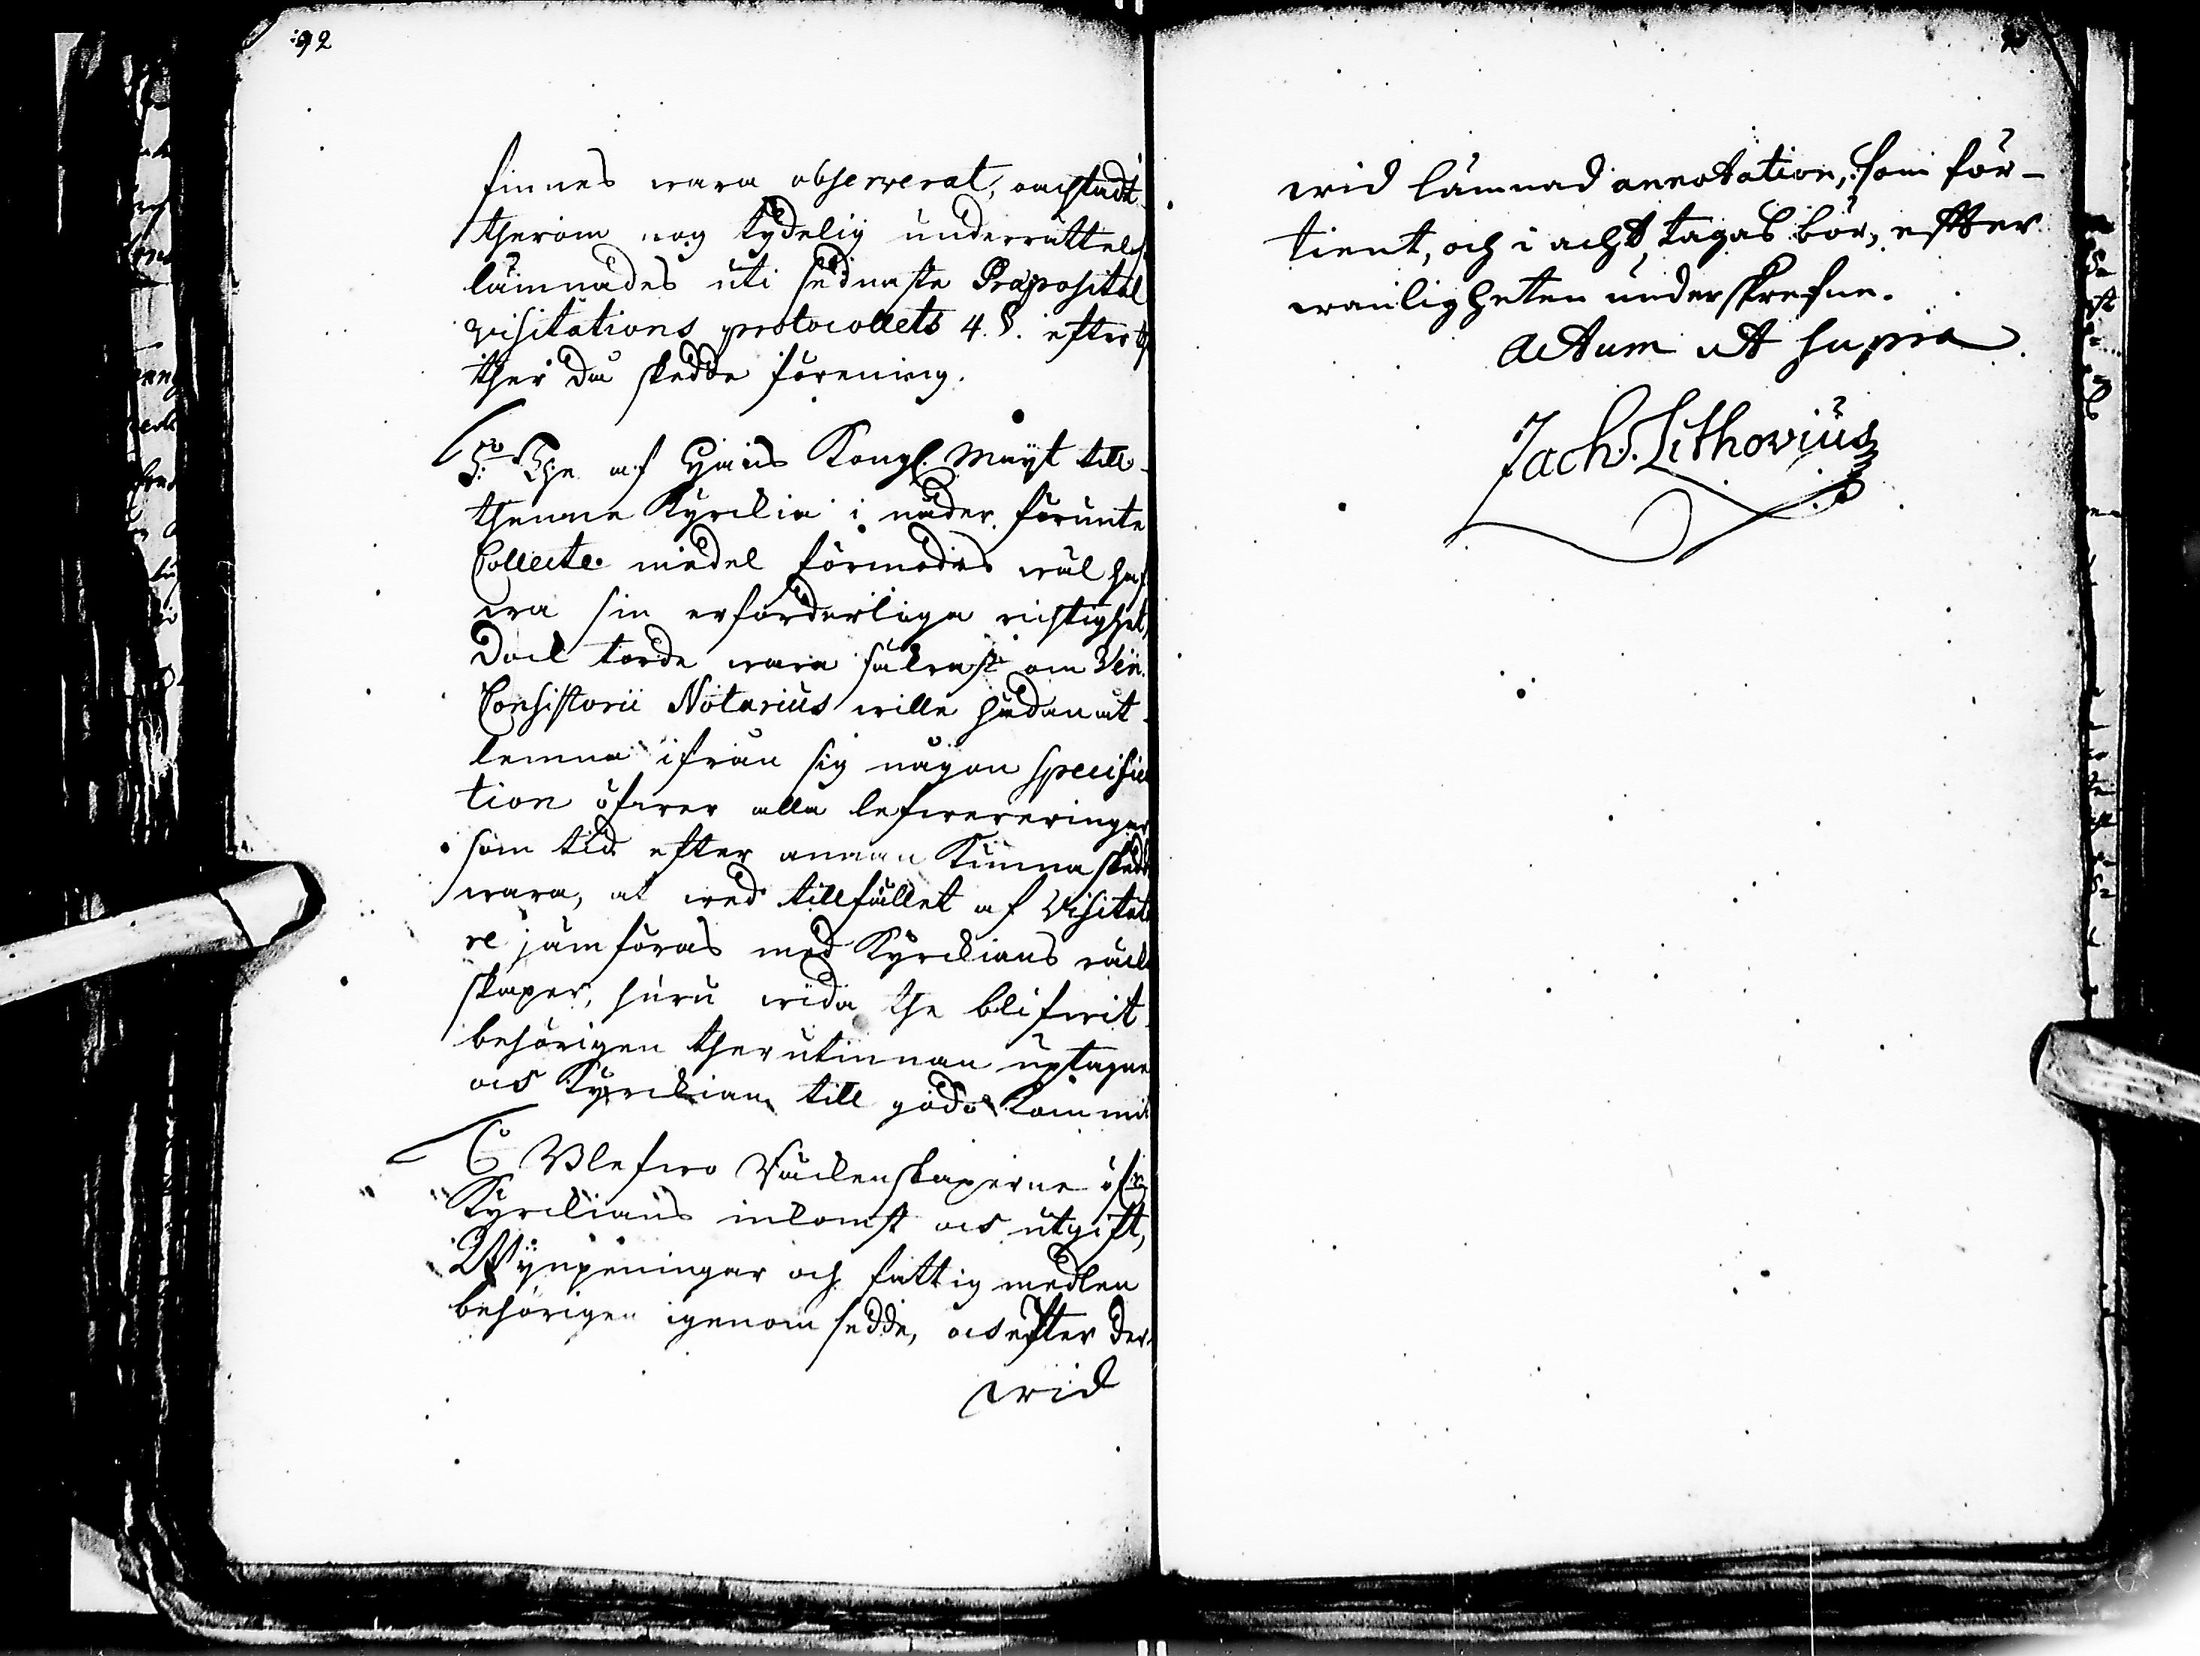 92
finnes wara observerat, oachtadt
therom nog tydelig underrättels
lämnades uti sednaste Præposital
visitations protocollets 4. §. efter
ther då skedde förening.
5:o The af Hans Kongl. Mayt till
thenne Kyrckia i nåder förunte
Collecte medel förmodes wäl haf
wa sin erforderliga richtighet,
Dock torde wara säkrast om Ven.
Consistorii Notarius wille hädanåt
lemna ifrån sig någon specifica
tion öfwer alla lefwereringar
som tid efter annan kunna skedde
wara, at wid tillfället af Visitato
re jämföras med Kyrckians räck
skaper, huru wida the blifwit
behörigen therutinnan uptagne
och Kyrckian till godo kommit
6:o Blefwo Räckenskaperne öfwer
Kyrckians inkomst och utgift,
Wijnpeningar och fattig medlen
behörigen igenomsedde, och efter der
wid
wid lämnad annotation, som för-
tient, och i acht tagas bör, effter
wanligheten underskrefne.
Actum ut supra
Zach. Lithovius